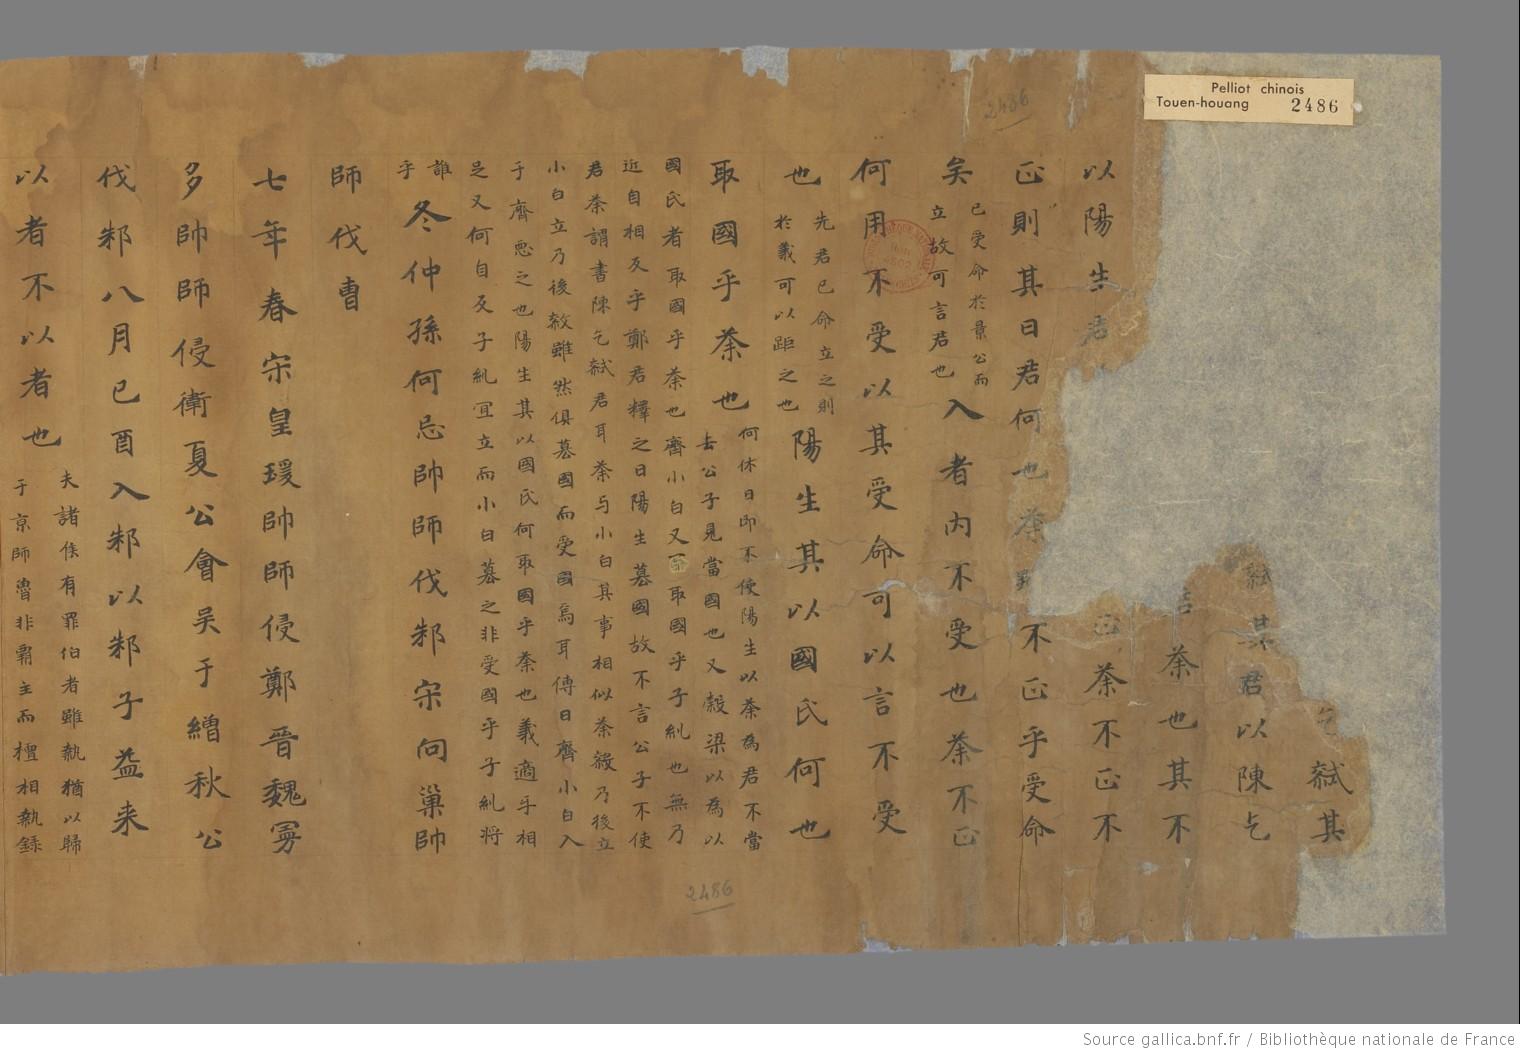 Pelliot chinois
Touen-houang 2486
2486
弑其
弑其君以陳乞
荼也其不
以陽生君正荼不正不
正則其曰君何也荼不正乎受命
矣
已受命於景公而
立故可言君也
入者內不受也荼不正
何用不受以其受命可以言不受
也
先君已命立之則
於義可以距之也
陽生其以國氏何也
取國乎荼也
何休曰即不使陽生以荼為君不當
去公子見當國也又穀梁以為以
國氏者取國乎荼也齊小白又取國乎子糺也無乃
近自相反乎鄭君釋之曰陽生篡國故不言公子不使
君荼謂書陳乞弑君耳荼与小白其事相似荼弑乃後立
小白立乃後敘雖然俱篡國而受國焉耳傳曰齊小白入
于齊惡之也陽生其以國氏何取國乎荼也義適乎相
足又何自反子糺宜立而小白篡之非受國乎子糺将
誰
乎
冬仲孫何忌帥師伐邾宋向巢帥
師伐曹
七年春宋皇瑗帥師侵鄭晉魏曼
多帥師侵衛夏公會吴于繒秋公
伐邾八月己酉入邾以邾子益来
以者不以者也
夫諸侯有罪伯者雖執猶以歸
于京師魯非霸主而擅相執録
2486
Source gallica.bnf.fr / Bibliothèque nationale de France